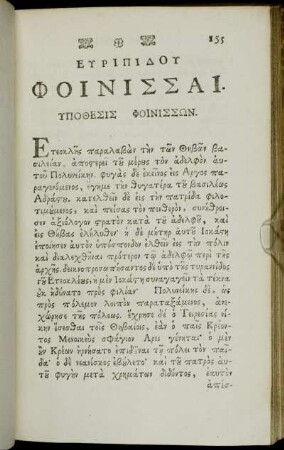 155
ΕΥΡΙΠΙΔΟΥ
ΦΟΙΝΙΣΣΑΙ.
ΥΠΟΘΕΣΙΣ ΦΟΙΝΙΣΣΩΝ.
Ετεοκλῆς παραλαβὼν τὴν τῶν Θηβῶν βα-
σιλείαν, ἀποστερεῖ τοῦ μέρους τὸν ἀδελφὸν αὐ-
τοῦ Πολυνείκην. φυγὰς δὲ ἐκεῖνος εἰς Αργος πα-
ραγενόμενος, ἔγημε τὴν θυγατέρα τοῦ βασιλέως
Αδράστου, κατελθεῖν δὲ εἰς τὴν πατρίδα φιλο-
τιμούμενος, καὶ πείσας τὸν πενθερὸν, συνήθροι-
σεν ἀξιόλογον στρατὸν κατὰ τοῦ ἀδελφοῦ, καὶ
εἰς Θήβας ἐλήλυθεν· ἡ δὲ μήτηρ αὐτοῦ Ιοκάστη
ἐποίησεν αὐτὸν ὑπόσπονδον ἐλθεῖν εἰς τὴν πόλιν
καὶ διαλεχθῆναι πρότερον τῷ ἀδελφῷ περὶ τῆς
ἀρχῆς. δεινοπροσωπήσαντος δὲ ὑπὸ τῆς τυραννίδος
τοῦ Ετεοκλέους, ἡ μὲν Ιοκάστη συναγαγεῖν τὰ τέκνα
οὐκ ἠδύνατο πρὸς φιλίαν· Πολυνείκης δὲ, ὡς
πρὸς πόλεμον λοιπὸν παραταξάμενος, ἀνε-
χώρησε τῆς πόλεως. ἔχρησε δὲ ὁ Τειρεσίας νί-
κην ἔσεσθαι τοῖς Θηβαίοις, ἐὰν ὁ παῖς Κρέον-
τος Μενοικεὺς σφάγιον Αρει γένηται· ὁ μὲν
οὖν Κρέων ἠρνήσατο ἐπιδοῦναι τῇ πόλει τὸν παῖ-
δα· ὁ δὲ νεανίσκος ἐβούλετο· καὶ τοῦ πατρὸς αὐτ
τῷ φυγὴν μετὰ χρημάτων διδόντος, ἑαυτὸν
ἀπέσ-